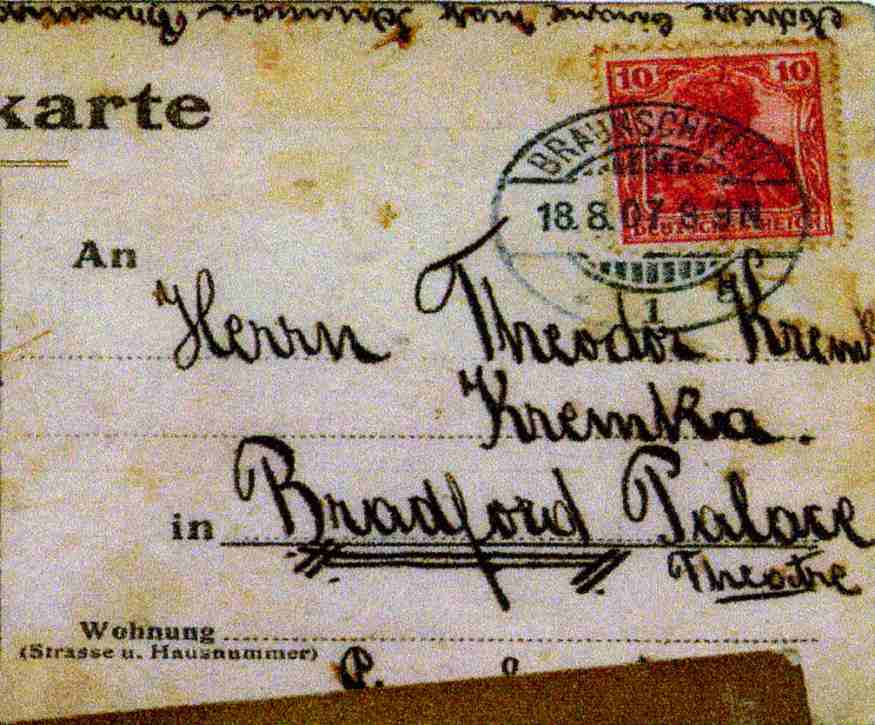 karte
10 10
BRAUNSCHWEIG
18.8.07. 8-9N
DEUTSCHES REICH
1
An
Herrn Theodor Krem
Kremka.
in Bradford Palace
Theatre
Wohnung
(Strasse u. Hausnummer)